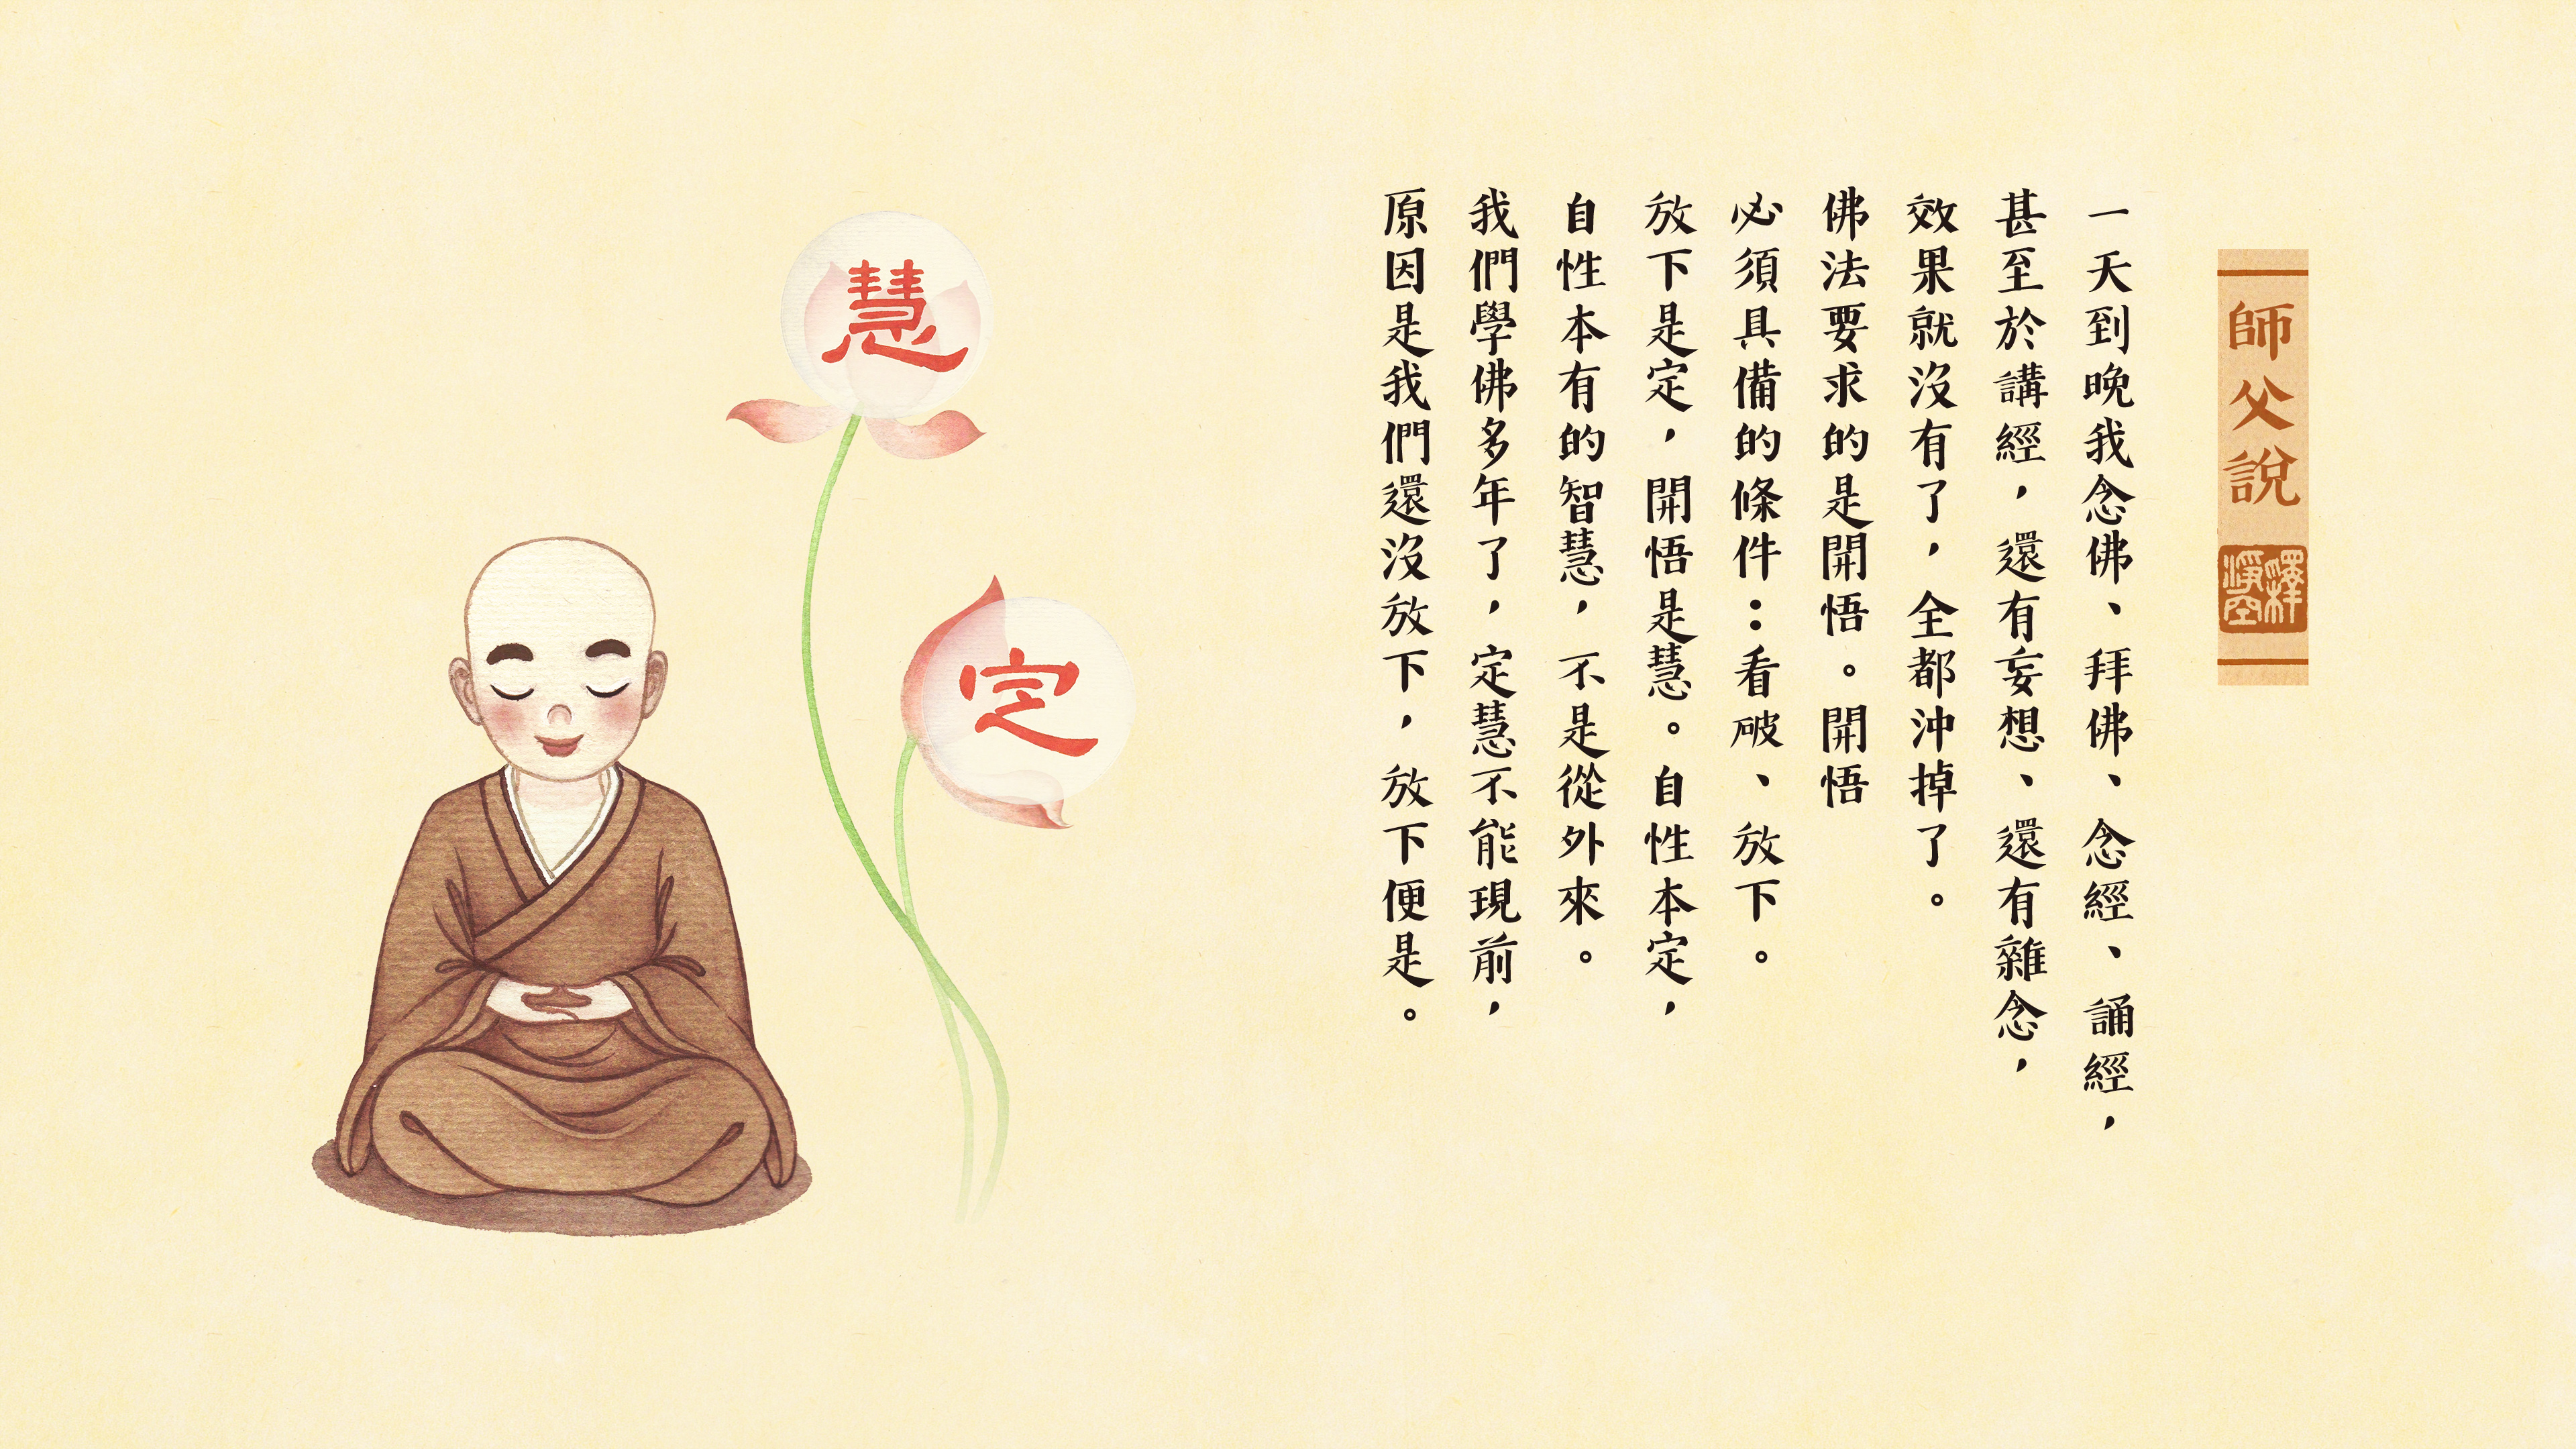 師父說
釋淨空
一天到晚我念佛、拜佛、念經、誦經，
甚至於講經，還有妄想、還有雜念，
效果就沒有了，全都沖掉了。
佛法要求的是開悟。開悟
必須具備的條件：看破、放下。
放下是定，開悟是慧。自性本定，
自性本有的智慧，不是從外來。
我們學佛多年了，定慧不能現前，
原因是我們還沒放下，放下便是。
慧
定